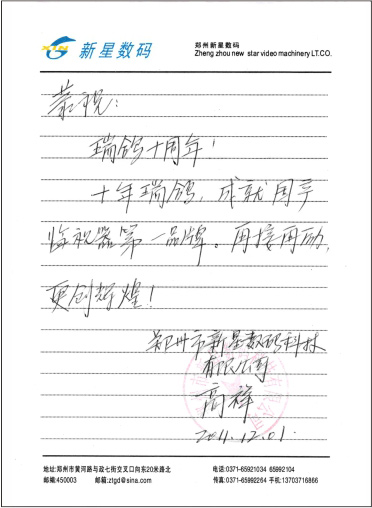 XIN
新星数码
郑州新星数码
Zheng zhou new star video machinery LT.CO.
恭祝：
瑞鸽十周年！
十年瑞鸽，成就国产
监视器第一品牌。再接再励，
更创辉煌！
郑州市新星数码科技
有限公司
高祥
2011.12.01.
地址:郑州市黄河路与政七街交叉口向东20米路北
电话:0371-65921034 65992104
邮编:450003 邮箱:ztgd@sina.com
传真:0371-65992264 手机:13703716866